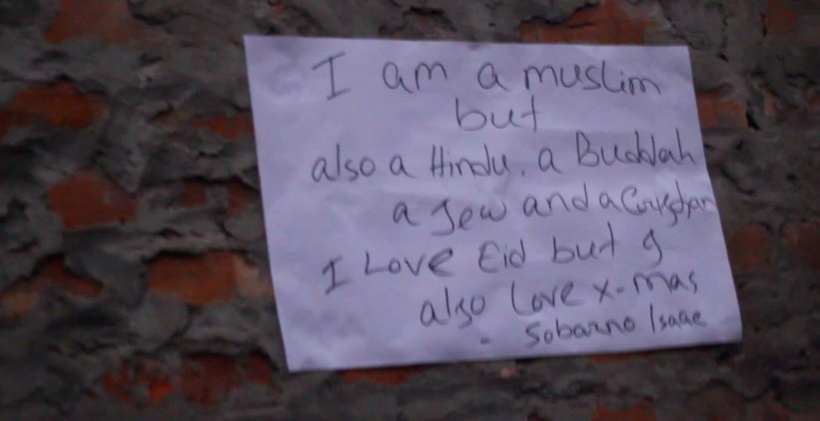 I am a muslim
but
also a Hindu, a Buddah
a Jew and a
I Love Eid but I
also Love x-mas
- Soborno Isaac